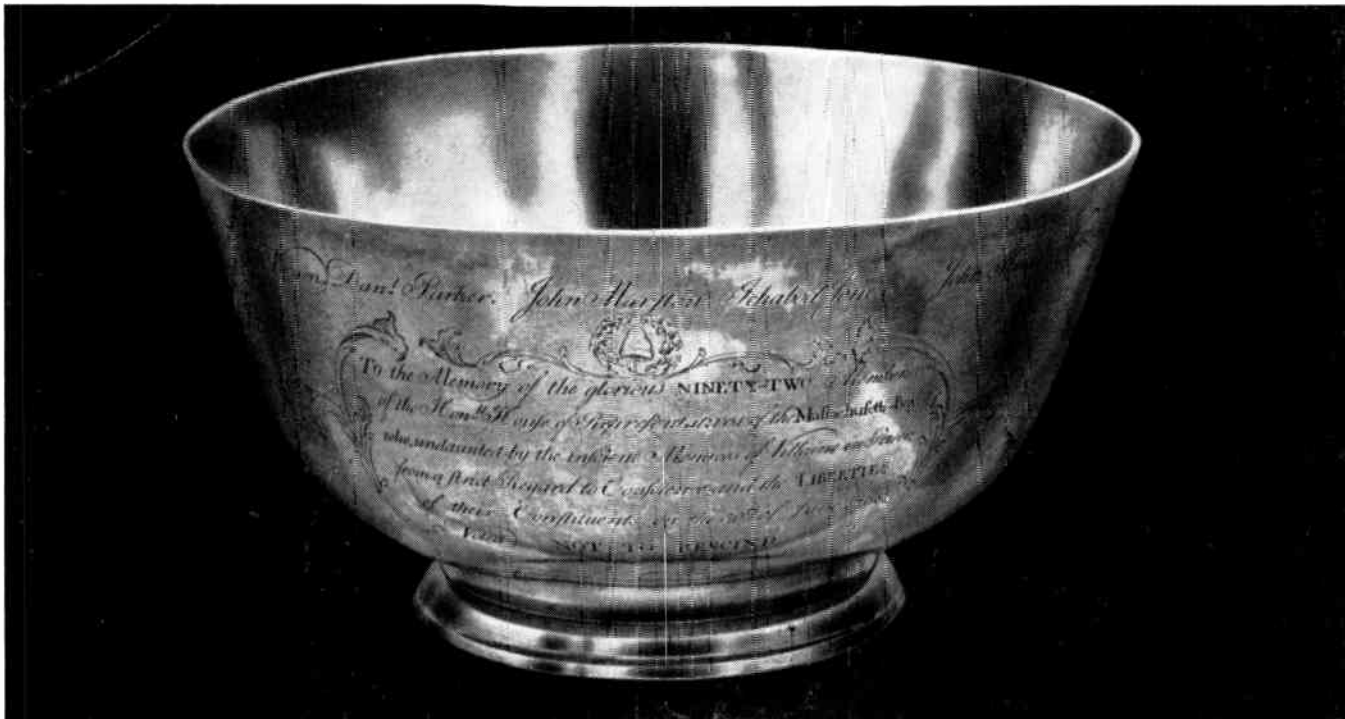 Dan! Parker. John Marston Ichabod Jones John
To the Memory of the glorious NINETY-TWO Members
of the Hon.ble House of Representatives of the Massachusetts-Bay
who, undaunted by the insolent Menaces of Villains in Power
from a strict Regard to Conscience and the LIBERTIES
of their Constituents on the 30th of
Voted NOT TO RESCIND